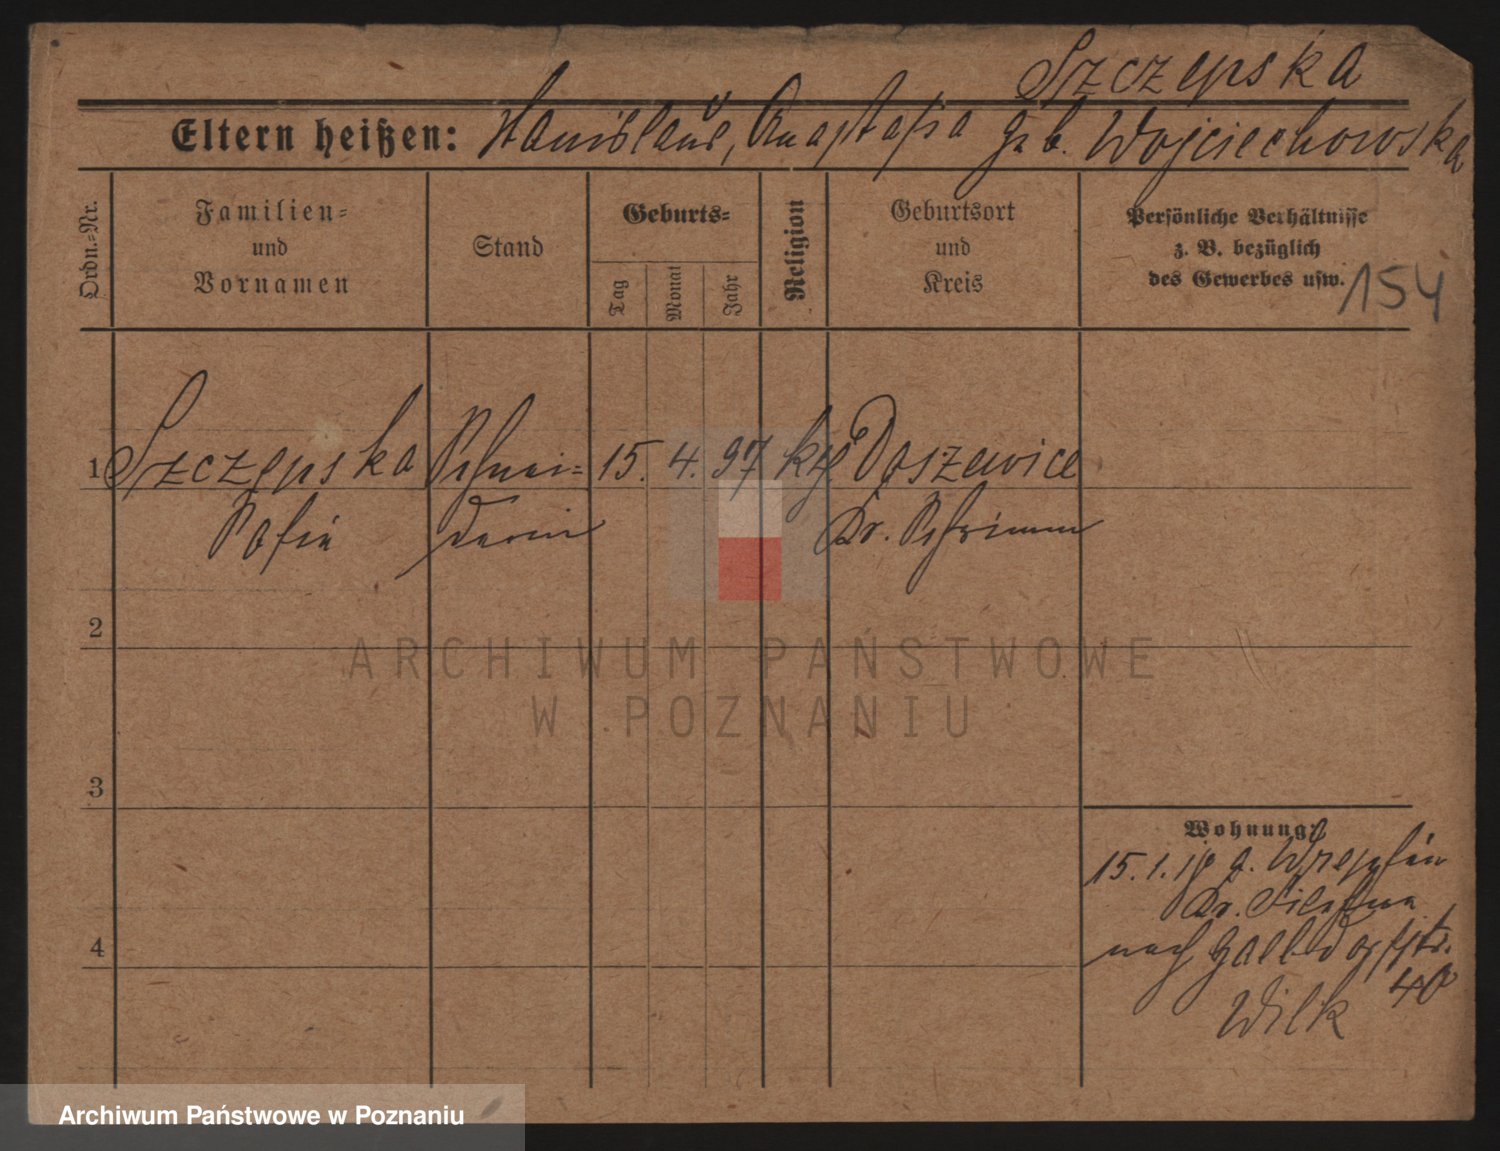 Szczepska
Eltern heißen: Stanislaus, Anastasia geb. Wojciechowska
Ordn.-Nr.
Familien-
und
Vornamen
Stand
Geburts-
Tag
Monat
Jahr
Religion
Geburtsort
und
Kreis
Persönliche Verhältnisse
z. B. bezüglich
des Gewerbes usw.
154
1 Szczepska Schnei- 15. 4. 97 kth. Daszewice
Sofie derin Kr. Schrimm
2
ARCHIWUM PAŃSTWOWE
W POZNANIU
3
Wohnung:
15. 1. 18 z. Wreschin
Kr. Filehne
nach
40
4
Wilk
Archiwum Państwowe w Poznaniu